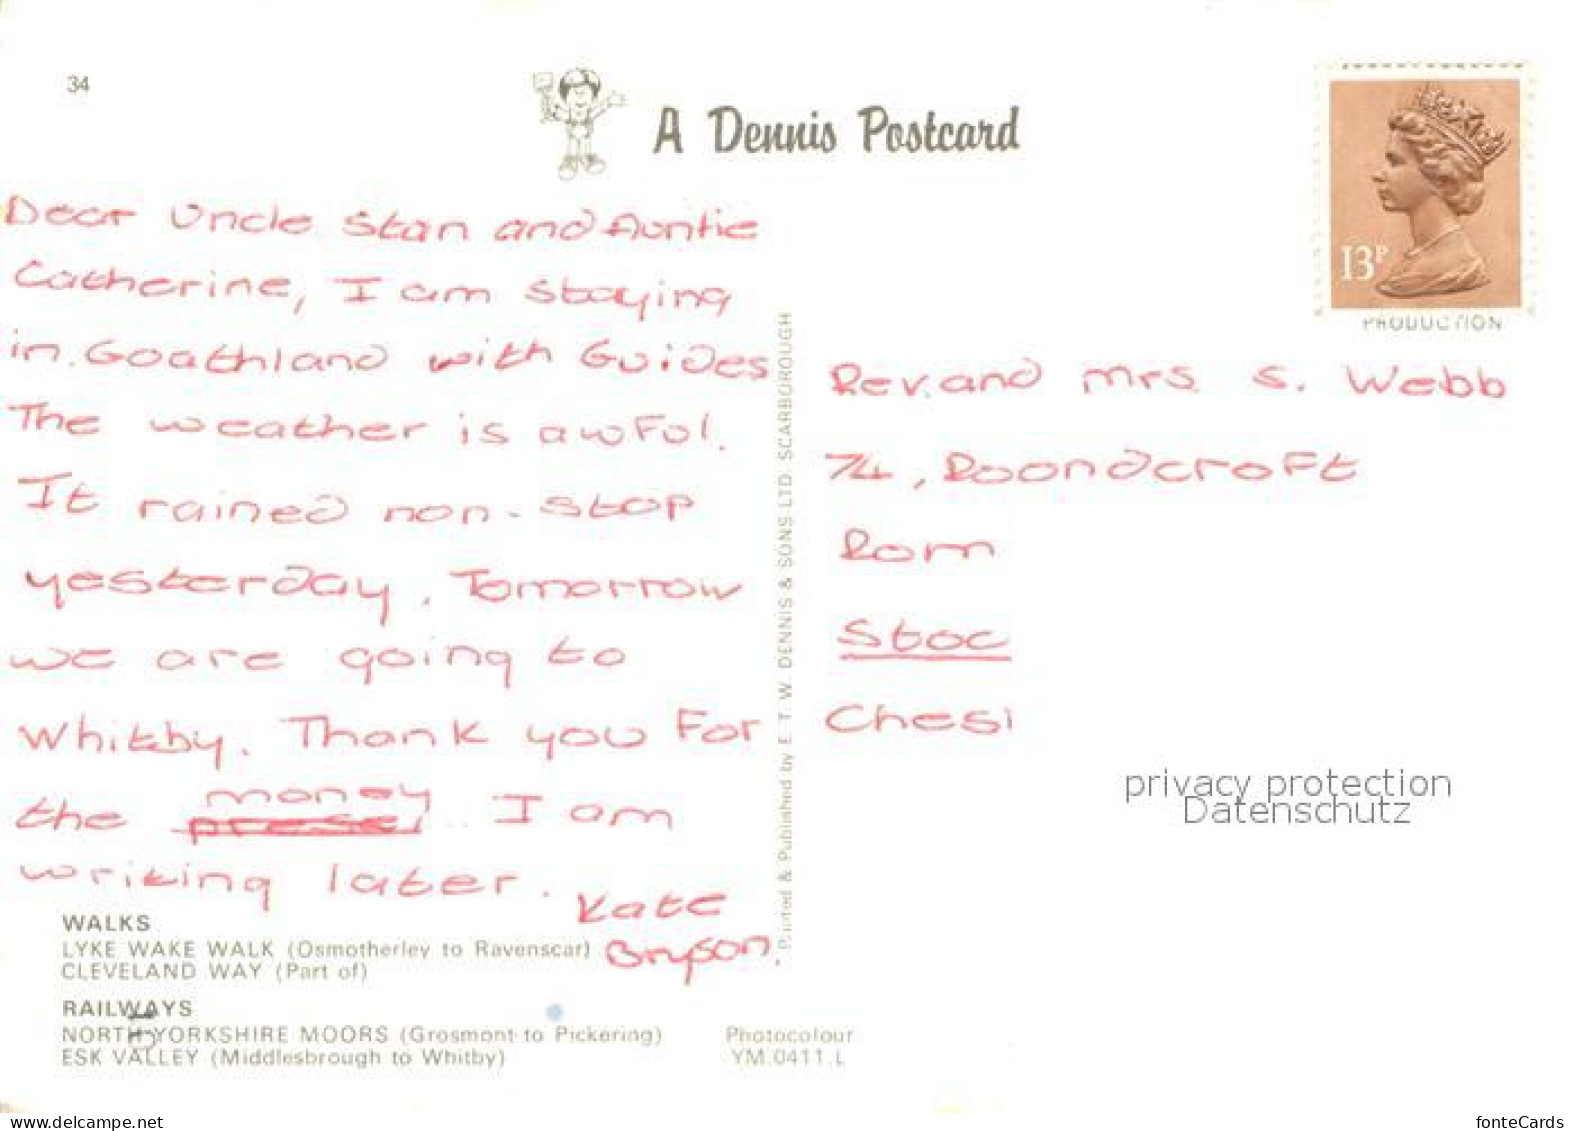 34
A Dennis Postcard
13P
PRODUCTION
Dear Uncle Stan and Auntie
Catherine, I am staying
in Goathland with Guides
The weather is awful.
It rained non-stop
yesterday. Tomorrow
we are going to
Whitby. Thank you for
the money I am
writing later.
Kate
Bryson.
Printed & Published by E. T. W. DENNIS & SONS LTD. SCARBOROUGH
Rev. and Mrs S. Webb
74, Roundcroft
Rom
Stoc
Chesi
privacy protection
Datenschutz
WALKS
LYKE WAKE WALK (Osmotherley to Ravenscar)
CLEVELAND WAY (Part of)
RAILWAYS
NORTH YORKSHIRE MOORS (Grosmont to Pickering)
ESK VALLEY (Middlesbrough to Whitby)
Photocolour
YM.0411.L
www.delcampe.net
fonteCards